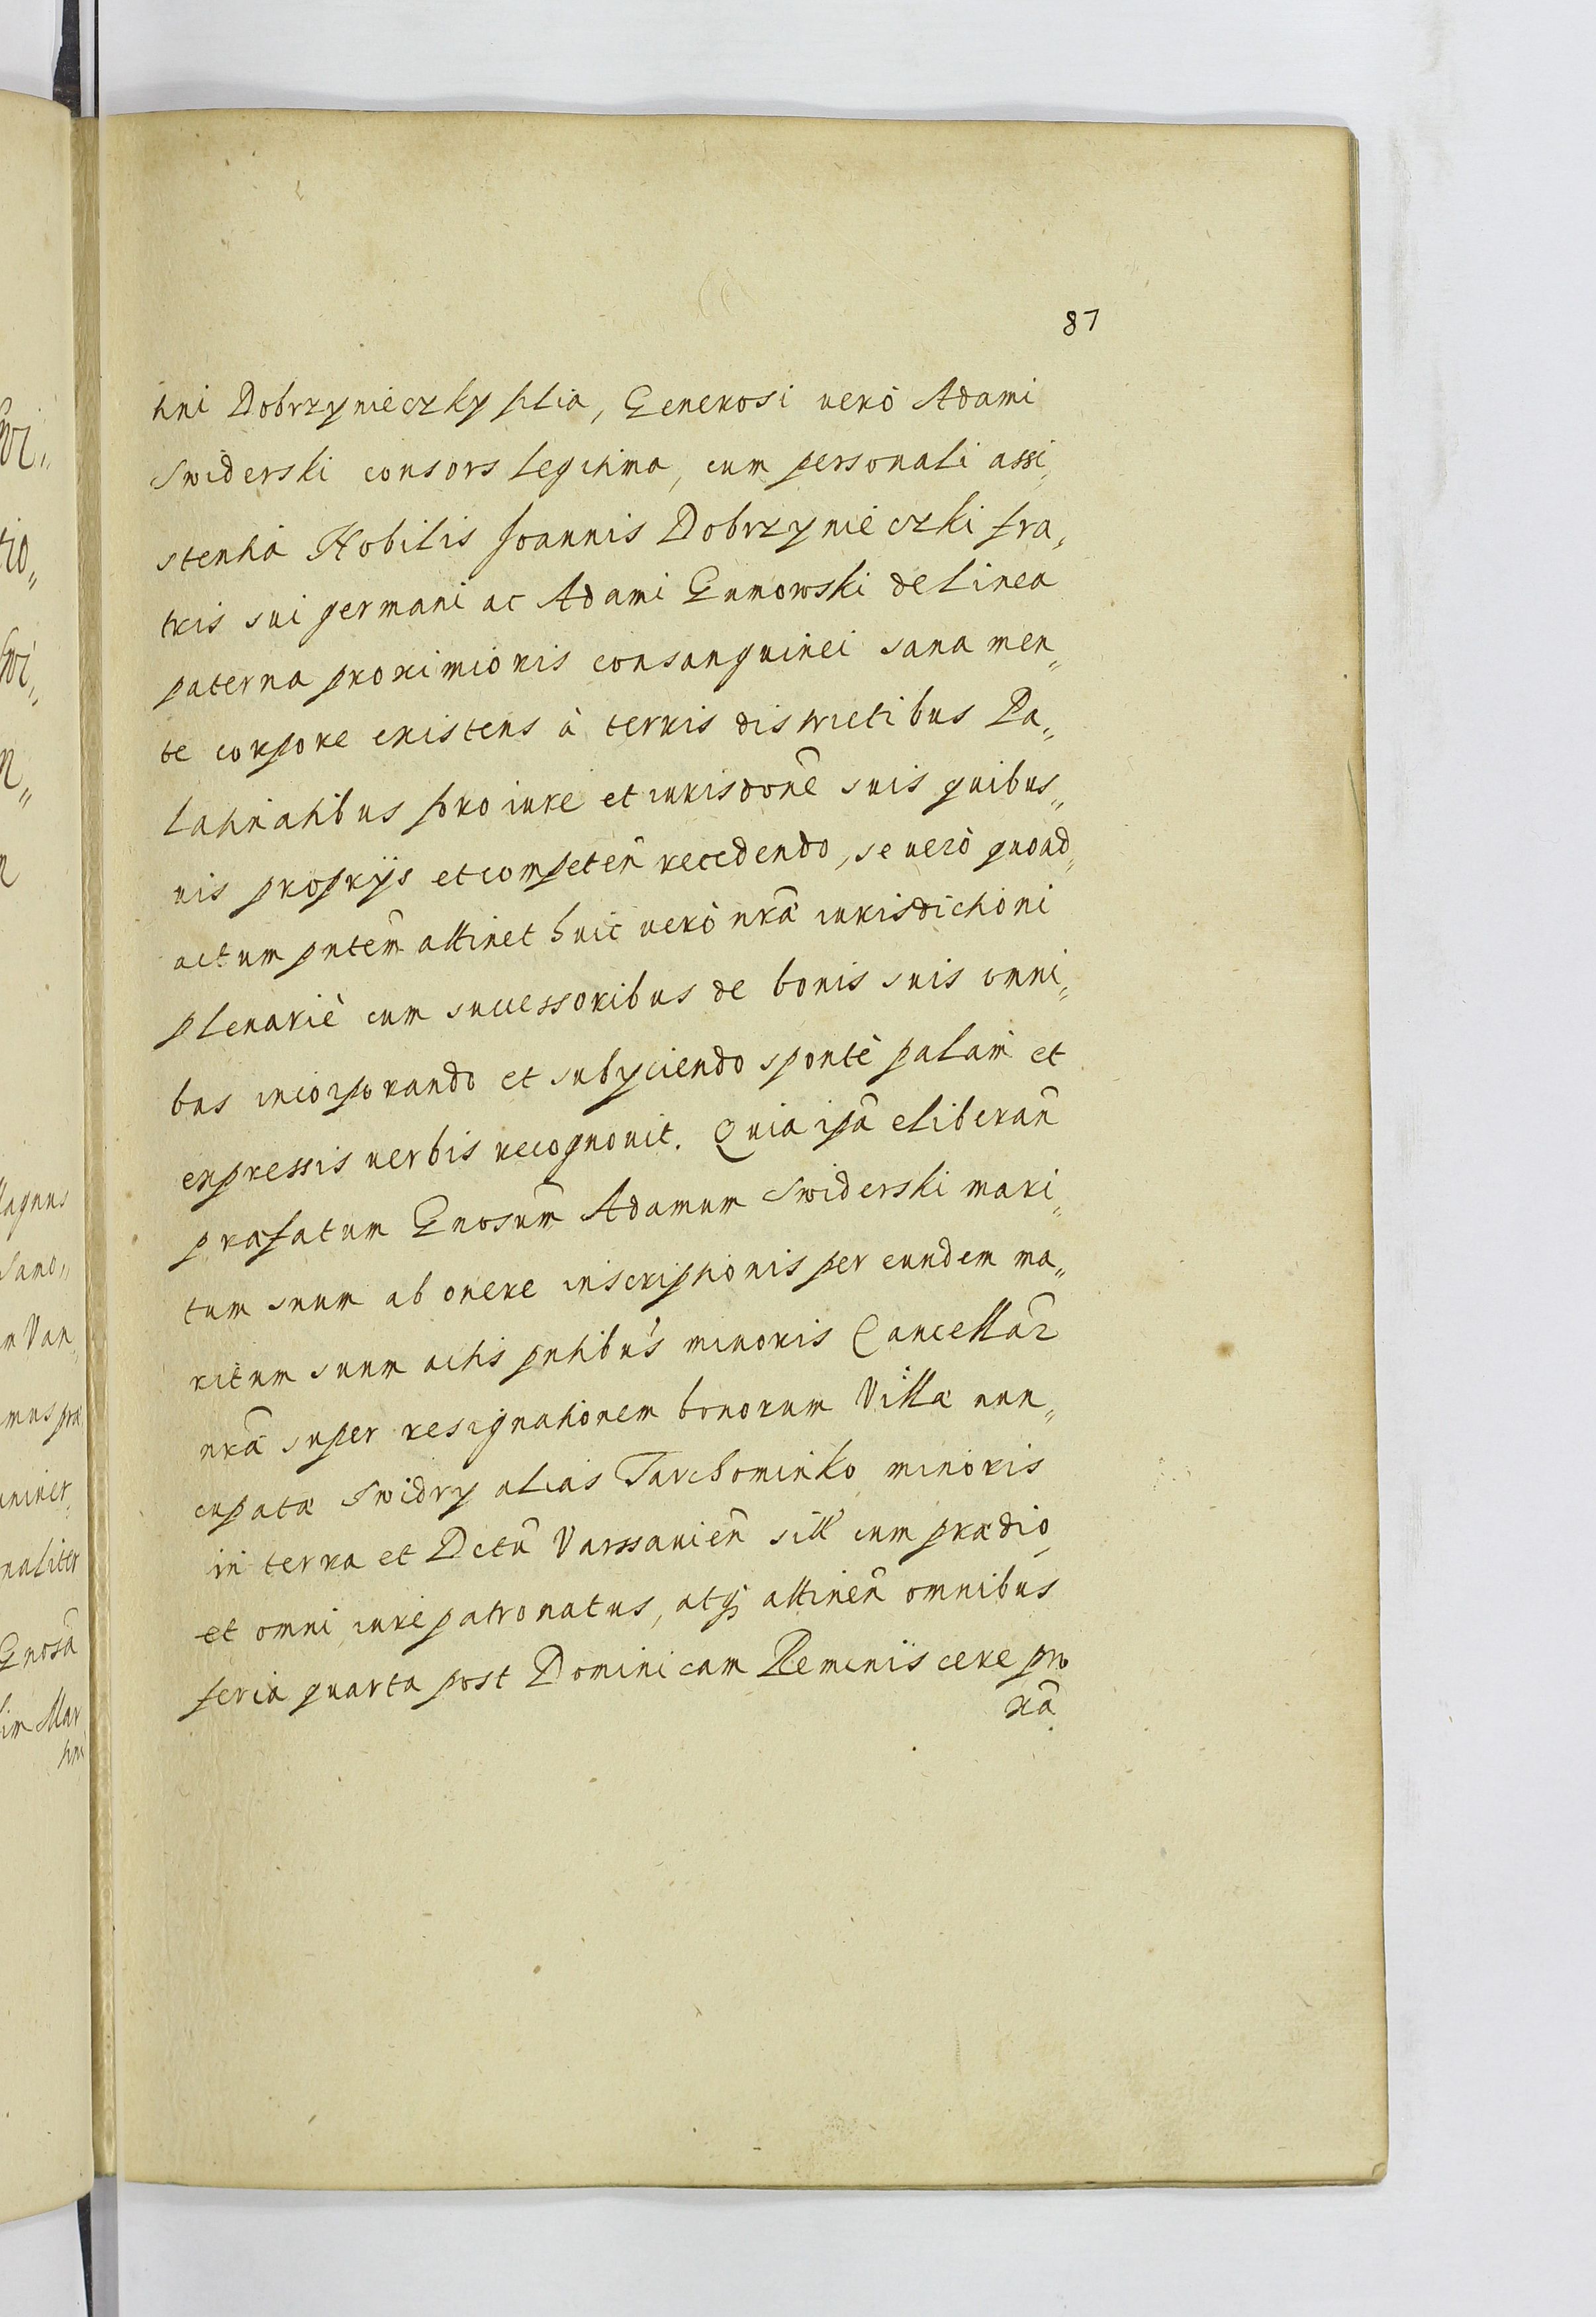 87
tini Dobrzynieczky filia, Generosi verò Adami
Swiderski consors legitima, cum personali assi„
stentia Nobilis Joannis Dobrzynieczki fra„
tris sui germani ac Adami Gunowski de linea
paterna proximioris consanguinei sana men„
te corpore existens à terris districtibus Pa„
latinatibus pro iure et iurisdone suis quibus„
vis proprijs et competen recedendo, se verò quoad
actum pntem attinet huic verò nrae iurisdictioni
plenariè cum successoribus de bonis suis omni„
bus incorporando et subyciendo spontè palam et
expressis verbis recognovit. Quia ipa eliberan
praefatum Gnosum Adamum Swiderski mari„
tum suum ab onere inscriptionis per eundem ma„
ritum suum actis pntibus minoris Cancellar
nrae super resignationem bonorum Villae nun„
cupatae Swidry alias Tarchominko minoris
in terra et Dctu Varssavien sitt cum praedio
et omni iure patronatus, atq attinen omnibus
feria quarta post Dominicam Reminiscere pro
xa